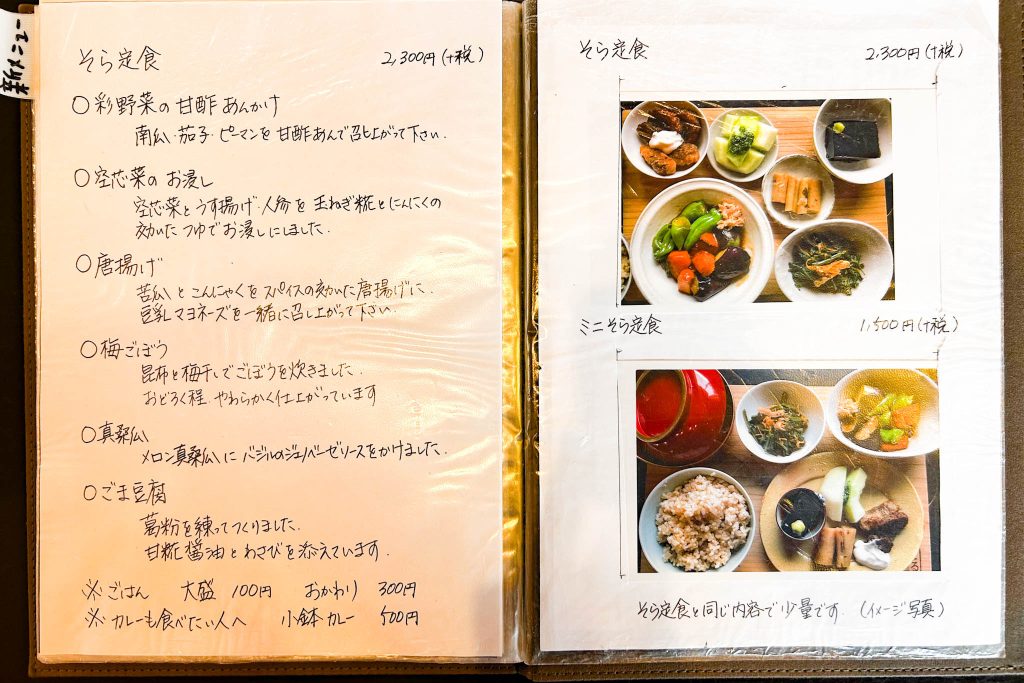 そら定食 2,300円(+税)
○彩野菜の甘酢あんかけ
南瓜 茄子・ピーマンを甘酢あんで召し上がって下さい.
○空芯菜のお浸し
空芯菜とうす揚げ・人参を玉ねぎ糀とにんにくの
効いたつゆでお浸しにしました.
○唐揚げ
苦瓜とこんにゃくをスパイスの効いた唐揚げに.
豆乳マヨネーズを一緒に召し上がって下さい.
○梅ごぼう
昆布と梅干しでごぼうを炊きました.
おどろく程.やわらかく仕上がっています
○真桑瓜
メロン真桑瓜にバジルのジェノベーゼソースをかけました.
○ごま豆腐
葛粉を練ってつくりました.
甘糀醤油とわさびを添えています.
※ごはん 大盛 100円 おかわり 300円
※カレーも食べたい人へ 小鉢カレー 500円
そら定食 2,300円(+税)
ミニそら定食 1,500円(+税)
そら定食と同じ内容で少量です. (イメージ写真)